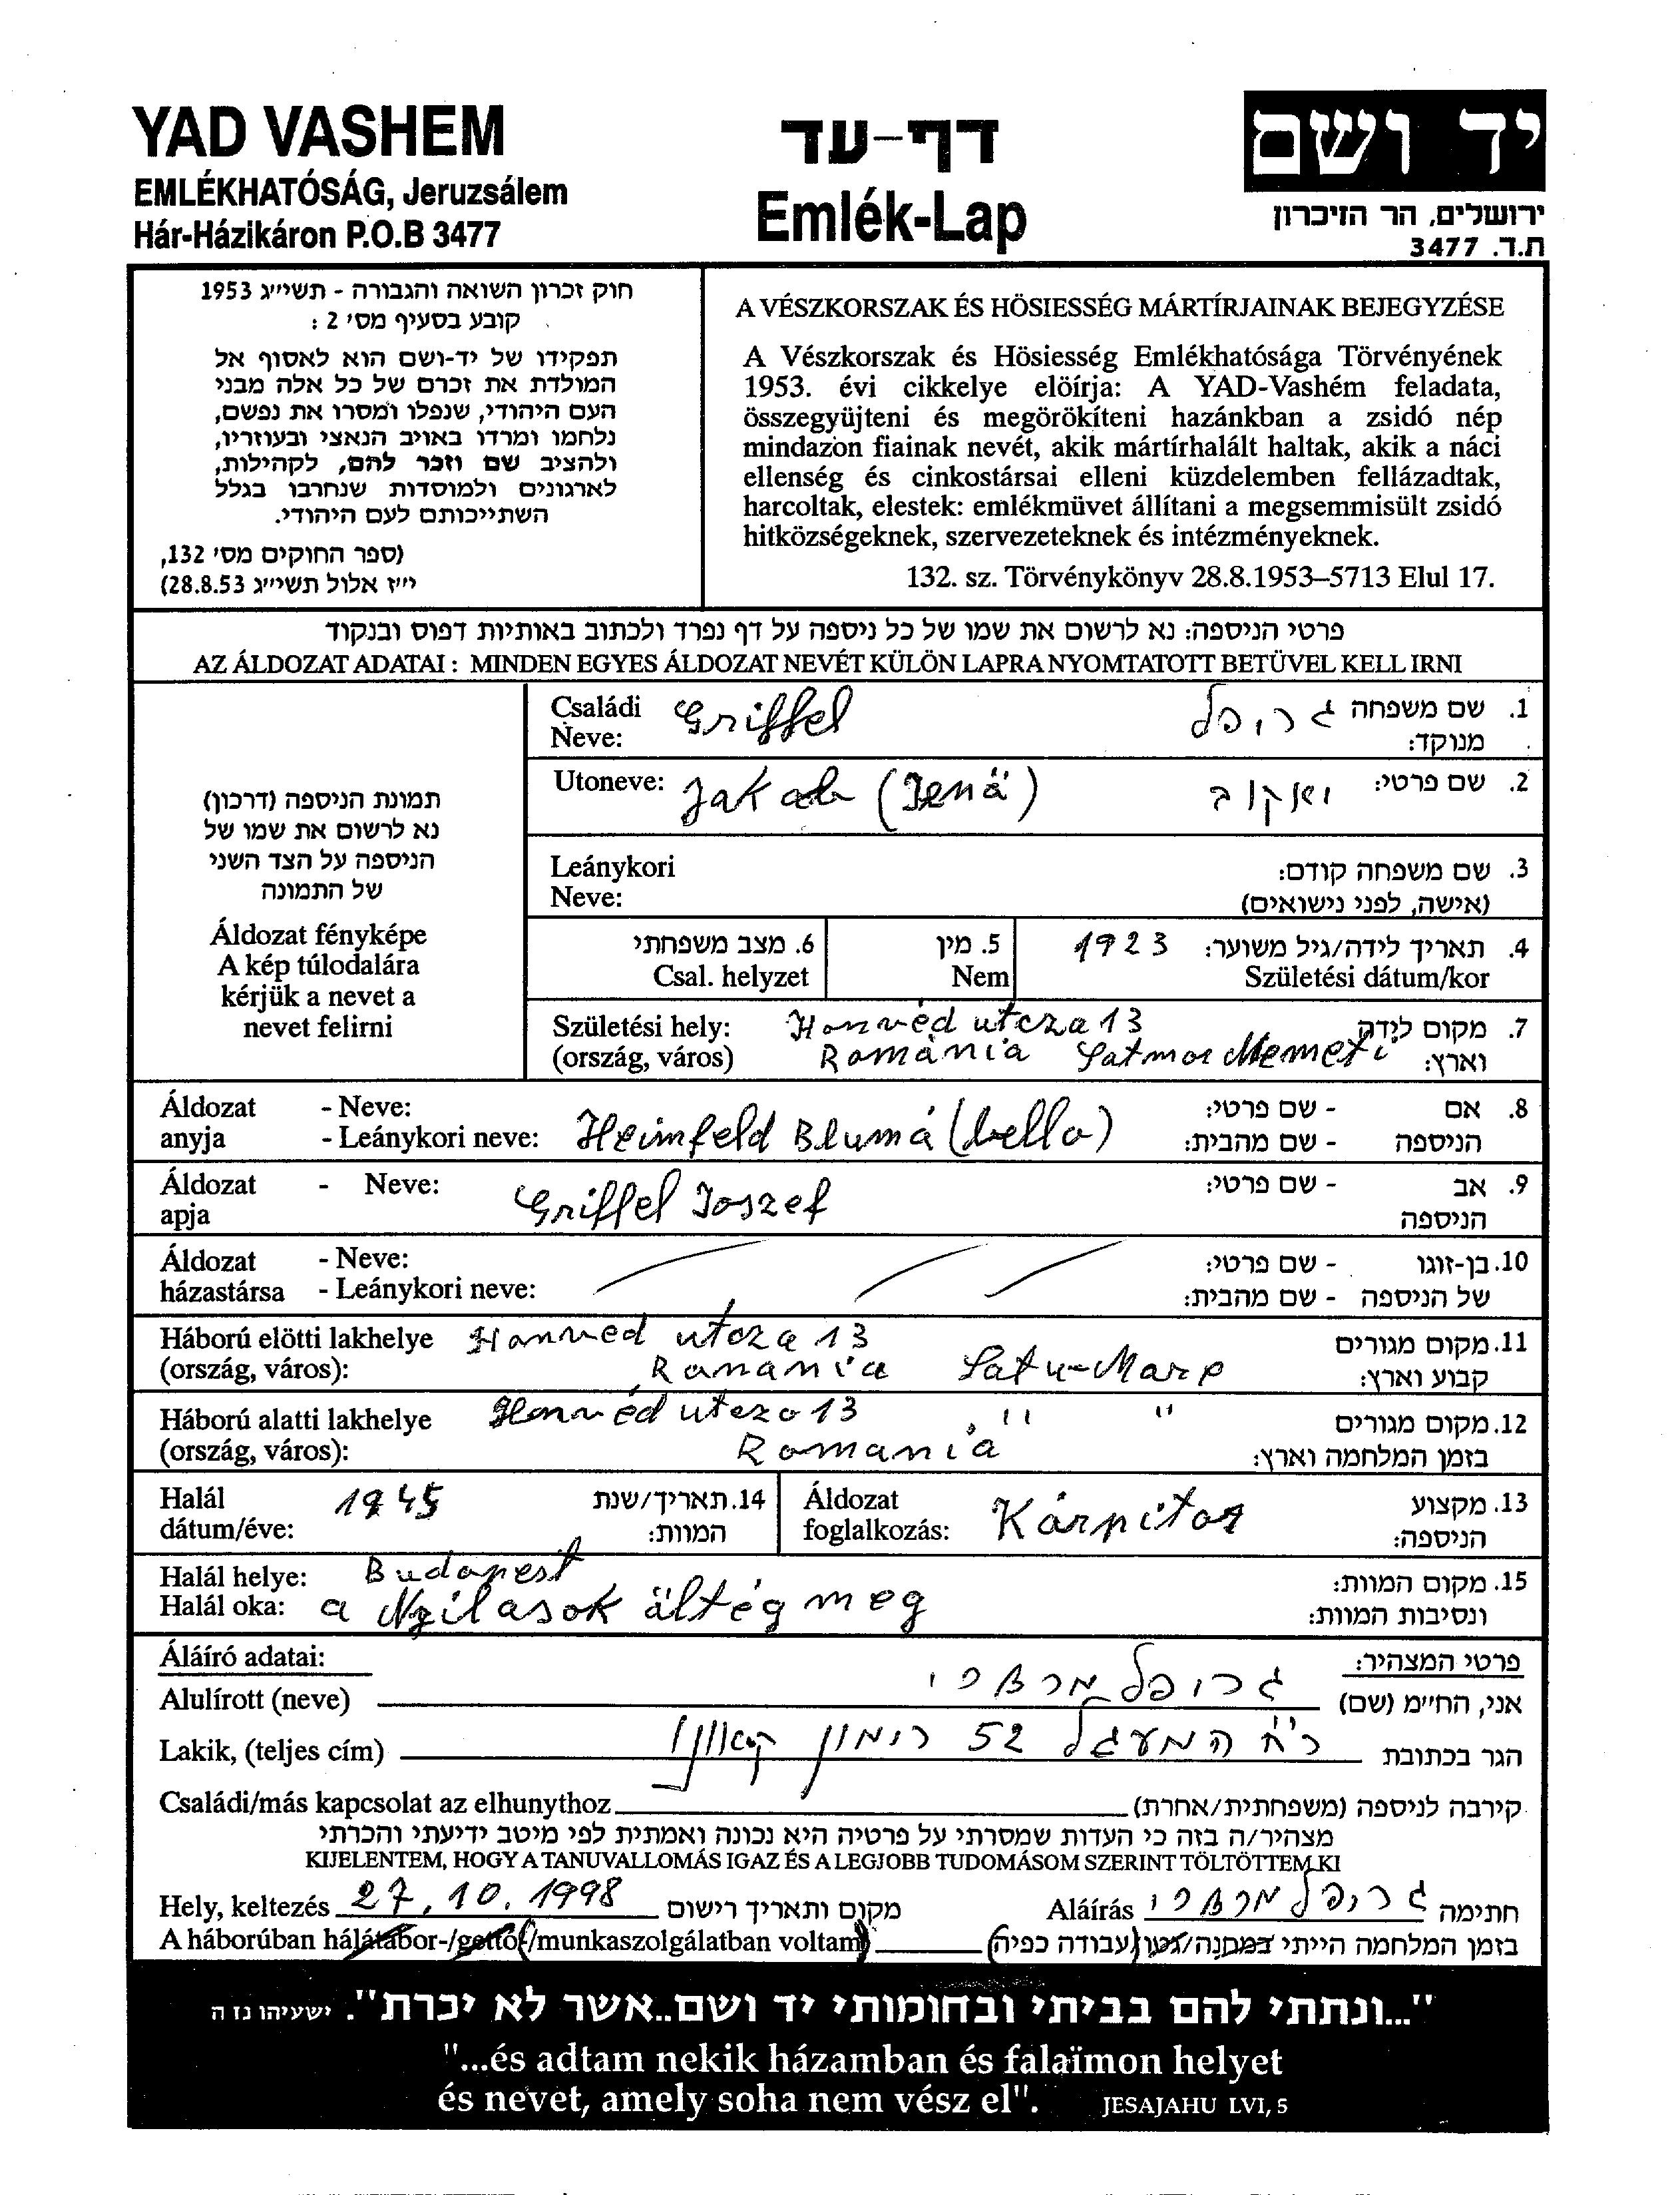 YAD VASHEM
EMLÉKHATÓSÁG, Jeruzsálem
Hár-Házikáron P.O.B 3477
דף-עד
Emlék-Lap
יד ושם
ירושלים, הר הזיכרון
ת.ד. 3477
חוק זכרון השואה והגבורה - תשי״ג 1953
קובע בסעיף מס׳ 2 :
תפקידו של יד-ושם הוא לאסוף אל
המולדת את זכרם של כל אלה מבני
העם היהודי, שנפלו ומסרו את נפשם,
נלחמו ומרדו באויב הנאצי ובעוזריו,
ולהציב שם וזכר להם, לקהילות,
לארגונים ולמוסדות שנחרבו בגלל
השתייכותם לעם היהודי.
(ספר החוקים מס׳ 132,
י״ז אלול תשי״ג 28.8.53)
A VÉSZKORSZAK ÉS HÖSIESSÉG MÁRTÍRJAINAK BEJEGYZÉSE
A Vészkorszak és Hösiesség Emlékhatósága Törvényének
1953. évi cikkelye elöírja: A YAD-Vashém feladata,
összegyüjteni és megörökíteni hazánkban a zsidó nép
mindazon fiainak nevét, akik mártírhalált haltak, akik a náci
ellenség és cinkostársai elleni küzdelemben fellázadtak,
harcoltak, elestek: emlékmüvet állítani a megsemmisült zsidó
hitközségeknek, szervezeteknek és intézményeknek.
132. sz. Törvénykönyv 28.8.1953–5713 Elul 17.
פרטי הניספה: נא לרשום את שמו של כל ניספה על דף נפרד ולכתוב באותיות דפוס ובנקוד
AZ ÁLDOZAT ADATAI : MINDEN EGYES ÁLDOZAT NEVÉT KÜLÖN LAPRA NYOMTATOTT BETÜVEL KELL IRNI
תמונת הניספה (דרכון)
נא לרשום את שמו של
הניספה על הצד השני
של התמונה
Áldozat fényképe
A kép túlodalára
kérjük a nevet a
nevet felirni
Családi Griffel גריפל 1. שם משפחה
Neve: מנוקד:
Utoneve: Jakab (Jenä) יאקוב 2. שם פרטי:
Leánykori 3. שם משפחה קודם:
Neve: (אישה, לפני נישואים)
6. מצב משפחתי 5. מין 1923 4. תאריך לידה/גיל משוער:
Csal. helyzet Nem Születési dátum/kor
Születési hely: Honvéd utcza 13 7. מקום לידה
(ország, város) Románia Satmar Nemeti וארץ:
Áldozat - Neve: 8. אם - שם פרטי:
anyja - Leánykori neve: Heimfeld Blumá (bella) הניספה - שם מהבית:
Áldozat - Neve: Griffel Joszef 9. אב - שם פרטי:
apja הניספה
Áldozat - Neve: 10. בן-זוגו - שם פרטי:
házastársa - Leánykori neve: של הניספה - שם מהבית:
Háború elötti lakhelye Honved utcza 13 11. מקום מגורים
(ország, város): Romania Satu-Mare קבוע וארץ:
Háború alatti lakhelye Honvéd utcza 13 " " 12. מקום מגורים
(ország, város): Romania בזמן המלחמה וארץ:
Halál 1945 14. תאריך/שנת Áldozat Kárpitos 13. מקצוע
dátum/éve: המוות: foglalkozás: הניספה:
Halál helye: Budapest 15. מקום המוות:
Halál oka: a Nyilasok ältég meg ונסיבות המוות:
Áláíró adatai: פרטי המצהיר:
Alulírott (neve) גריפל אני, החי״מ (שם)
Lakik, (teljes cím) המעגל 52 הגר בכתובת
Családi/más kapcsolat az elhunythoz קירבה לניספה (משפחתית/אחרת)
מצהיר/ה בזה כי העדות שמסרתי על פרטיה היא נכונה ואמתית לפי מיטב ידיעתי והכרתי
KIJELENTEM, HOGY A TANUVALLOMÁS IGAZ ÉS A LEGJOBB TUDOMÁSOM SZERINT TÖLTÖTTEM KI
Hely, keltezés 27.10.1998 מקום ותאריך רישום Aláírás גריפל חתימה
A háborúban hálátábor-/gettó/munkaszolgálatban voltam בזמן המלחמה הייתי במחנה/גטו/עבודה כפיה
"...ונתתי להם בביתי ובחומותי יד ושם..אשר לא יכרת". ישעיהו נז ה
"...és adtam nekik házamban és falaïmon helyet
és nevet, amely soha nem vész el". JESAJAHU LVI, 5